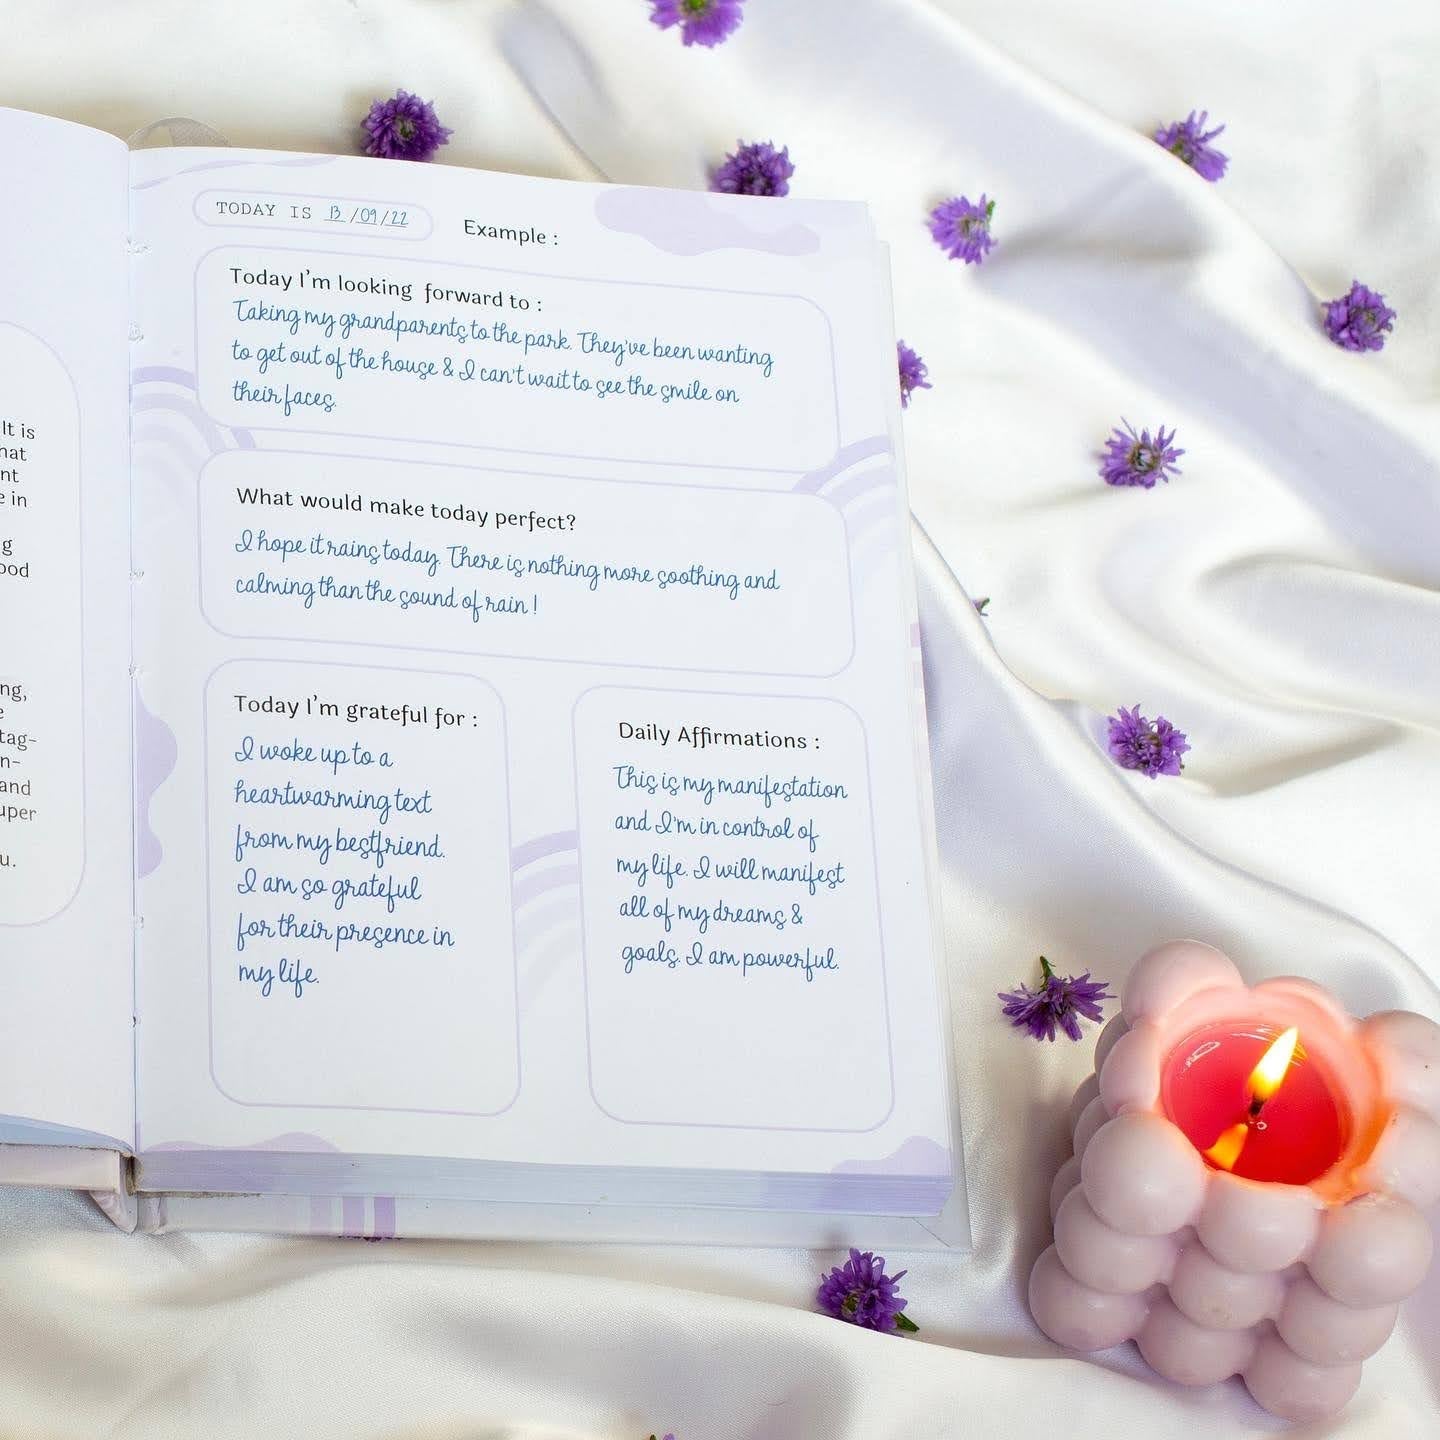 It is
hat
nt
e in
g
ood
ng,
e
tag-
n-
and
uper
u.
TODAY IS 13/09/22
Example :
Today I'm looking forward to :
Taking my grandparents to the park. They've been wanting
to get out of the house & I can't wait to see the smile on
their faces.
What would make today perfect?
I hope it rains today. There is nothing more soothing and
calming than the sound of rain !
Today I'm grateful for :
I woke up to a
heartwarming text
from my bestfriend.
I am so grateful
for their presence in
my life.
Daily Affirmations :
This is my manifestation
and I'm in control of
my life. I will manifest
all of my dreams &
goals. I am powerful.